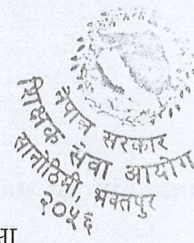 नेपाल सरकार
शिक्षक सेवा आयोग
सानोठिमी, भक्तपुर
२०५६